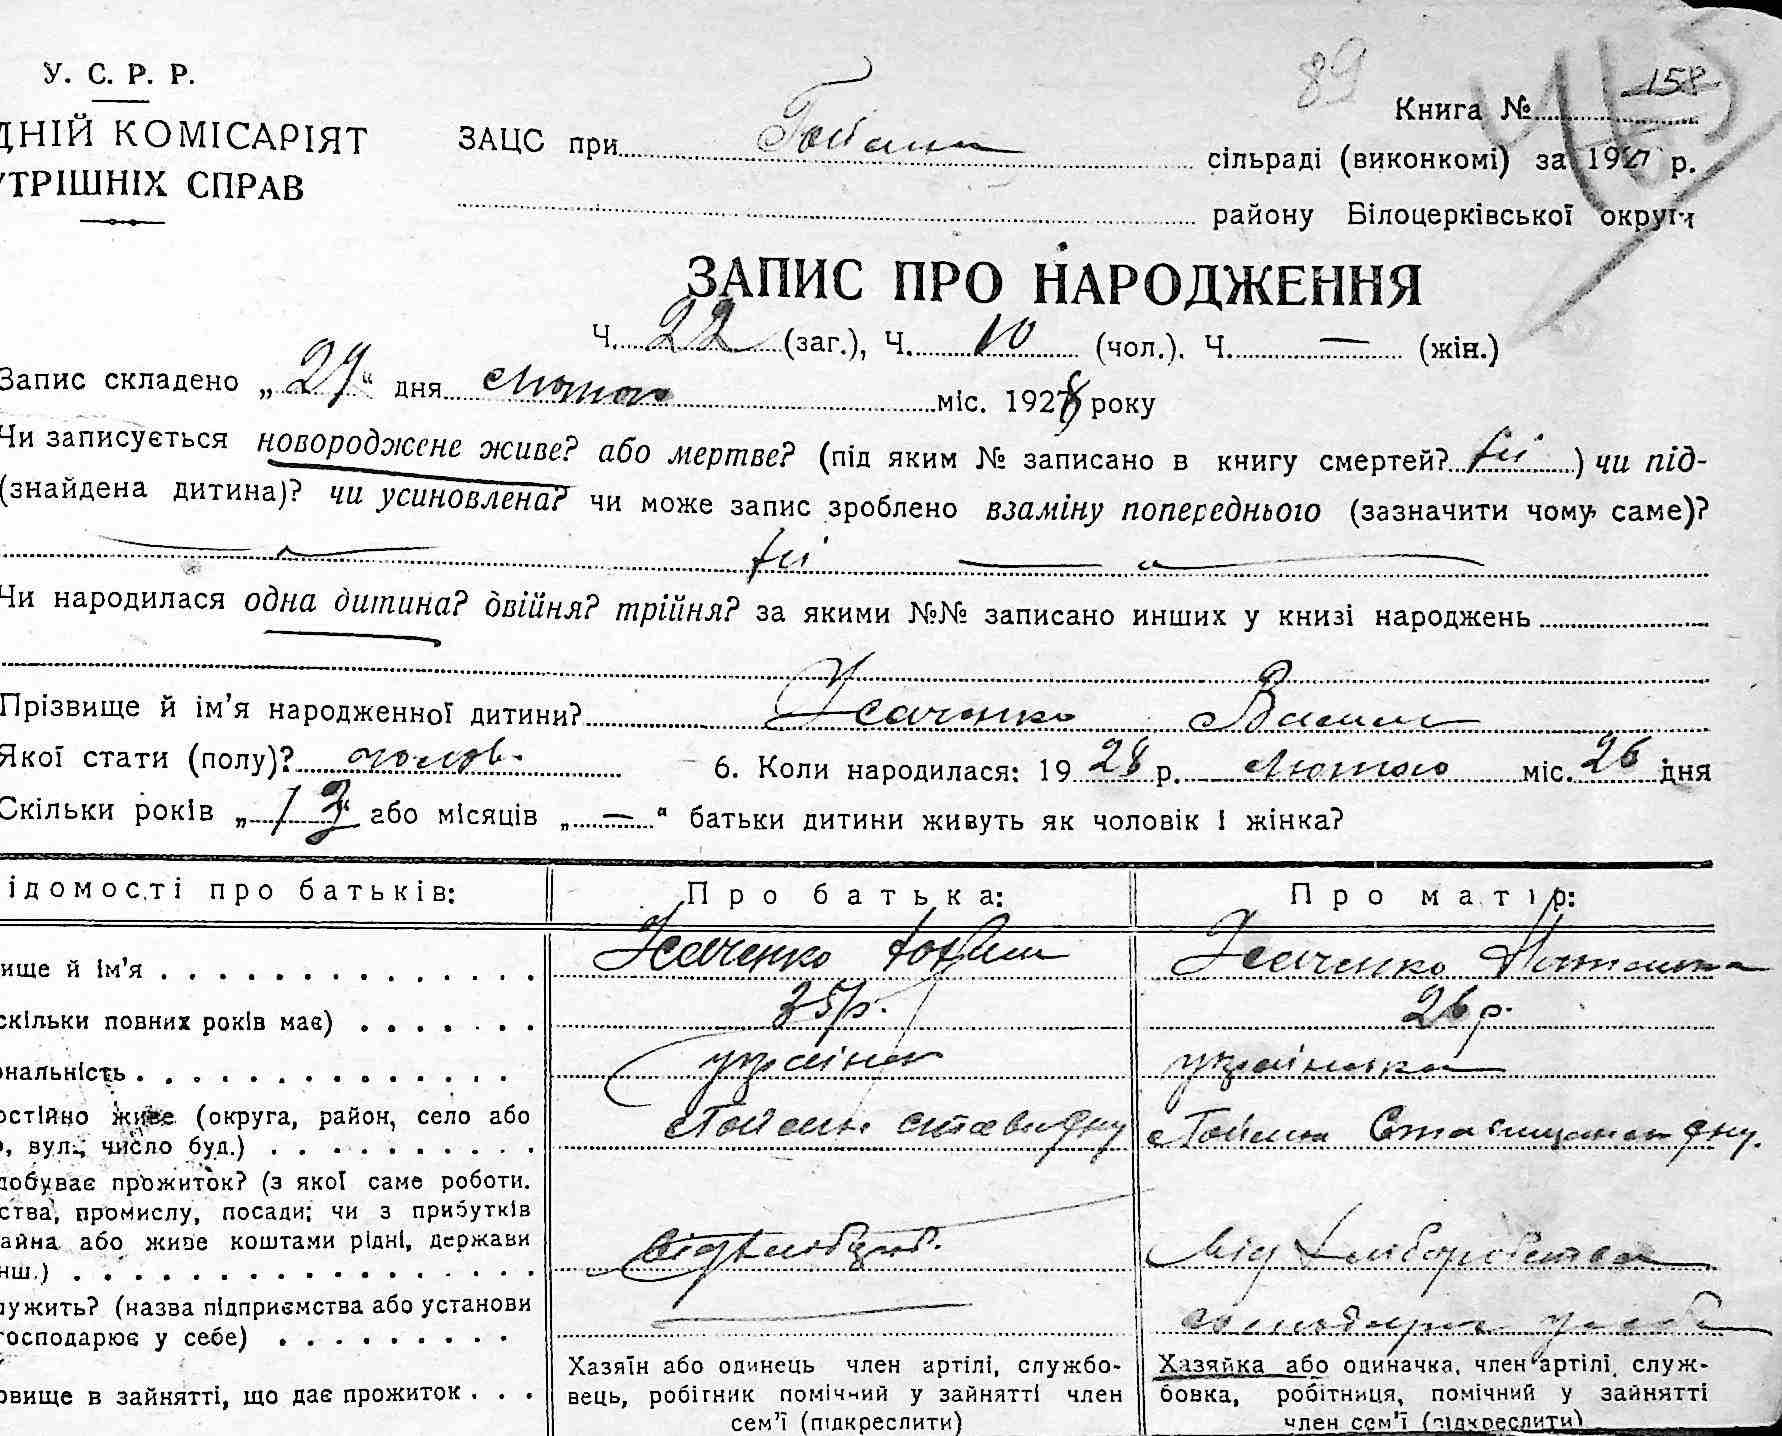 У. С. Р. Р.
89
Книга № 158
ДНІЙ КОМІСАРІЯТ
УТРІШНІХ СПРАВ
ЗАЦС при
сільраді (виконкомі) за 192 р.
району Білоцерківської округи
ЗАПИС ПРО НАРОДЖЕННЯ
Ч. 22 (заг.), Ч. 10 (чол.). Ч. — (жін.)
Запис складено „ 27 “ дня лютого міс. 1928 року
Чи записується новороджене живе? або мертве? (під яким № записано в книгу смертей? ні ) чи під-
(знайдена дитина)? чи усиновлена? чи може запис зроблено взаміну попереднього (зазначити чому саме)?
ні
Чи народилася одна дитина? двійня? трійня? за якими №№ записано инших у книзі народжень
Прізвище й ім'я народженної дитини? Усаченко Василь
Якої стати (полу)? чолов. 6. Коли народилася: 19 28 р. лютого міс. 26 дня
Скільки років „ 13 “ або місяців „ — “ батьки дитини живуть як чоловік і жінка?
ідомості про батьків: Про батька: Про матір:
ище й ім'я Усаченко Усаченко
скільки повних років має) 35 р. 26 р.
ональність українец українка
остійно живе (округа, район, село або
, вул., число буд.)
добуває прожиток? (з якої саме роботи.
ства, промислу, посади; чи з прибутків
айна або живе коштами рідні, держави
нш.) від хліборобства
лужить? (назва підприємства або установи
господарює у себе)
овище в зайнятті, що дає прожиток
Хазяїн або одинець член артілі, службо-
вець, робітник помічний у зайнятті член
сем'ї (підкреслити)
Хазяйка або одиначка, член артілі, служ-
бовка, робітниця, помічний у зайнятті
член сем'ї (підкреслити)